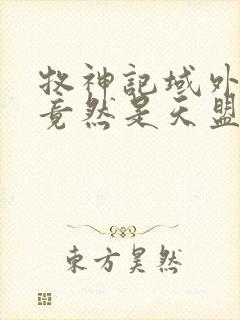 牧神記域外
竟然是天盟
東方昊然